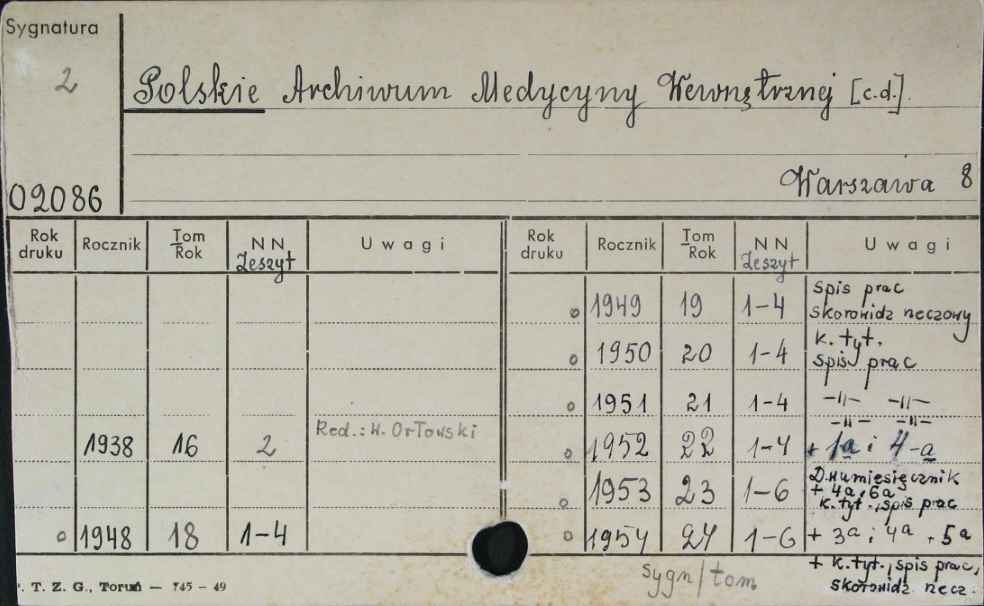 Sygnatura
2
Polskie Archiwum Medycyny Wewnętrznej [c.d.].
Warszawa 8
02086
Rok druku Rocznik Tom/Rok NN Zeszyt Uwagi Rok druku Rocznik Tom/Rok NN Zeszyt Uwagi
o 1949 19 1-4 Spis prac
skorowidz rzeczowy
o 1950 20 1-4 k. tyt.
spis prac
o 1951 21 1-4 -"- -"-
-"- -"-
1938 16 2 Red.: W. Orłowski o 1952 22 1-4 + 1a i 4-a
o 1953 23 1-6 Dwumiesięcznik
+ 4a, 6a
k. tyt., spis prac
o 1948 18 1-4 o 1954 24 1-6 + 3a i 4a, 5a
+ k. tyt., spis prac,
skorowidz rzecz.
T. Z. G., Toruń — 745 - 49
sygn/tom